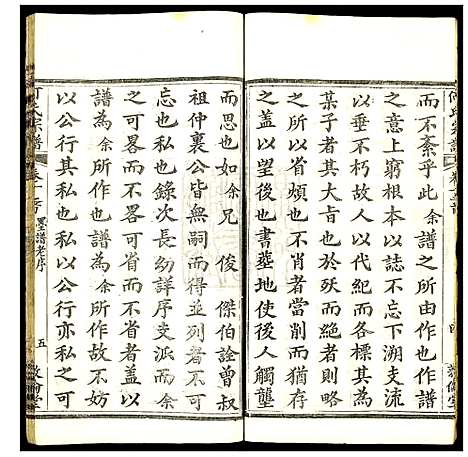 何氏宗譜 卷一
而不紊乎此余譜之所由作也作譜
之意上窮根本以誌不忘下溯支流
以垂不朽故人以代紀而各標其為
某子者其大旨也於殀而絶者則
之所以省煩也不肖者當削而猶存
之蓋以望後也書墓地使後人觸壟
而思也如余兄 俊 傑伯詮曾叔
祖仲裏公皆無嗣而得並列者不可
忘也私也錄次長幼詳序支派而余
可畧而不畧可省而不省者蓋以
譜為余所作也譜為余所作故不妨
以公行其私也私以公行亦私之可
氏宗譜 卷一 墨譜老序 五